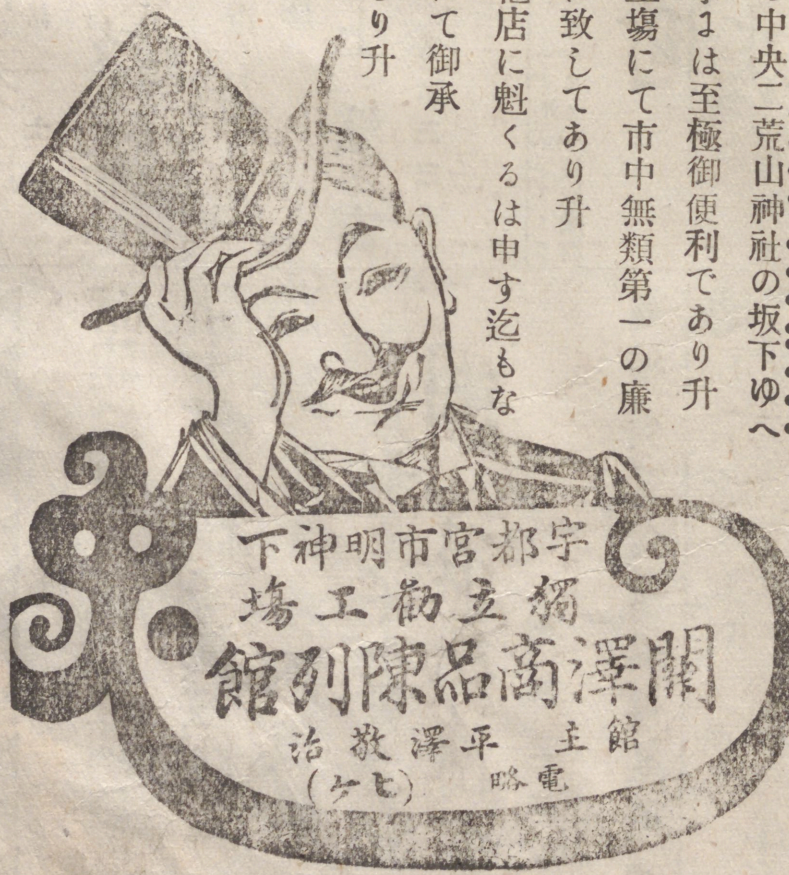 中央二荒山神社の坂下ゆへ
は至極御便利であり升
塲にて市中無類第一の廉
致してあり升
店に魁くるは申す迄もな
て御承
り升
宇都宮市明神下
獨立勸工塲
關澤商品陳列館
館主 平澤敬治
電略 (ヒケ)